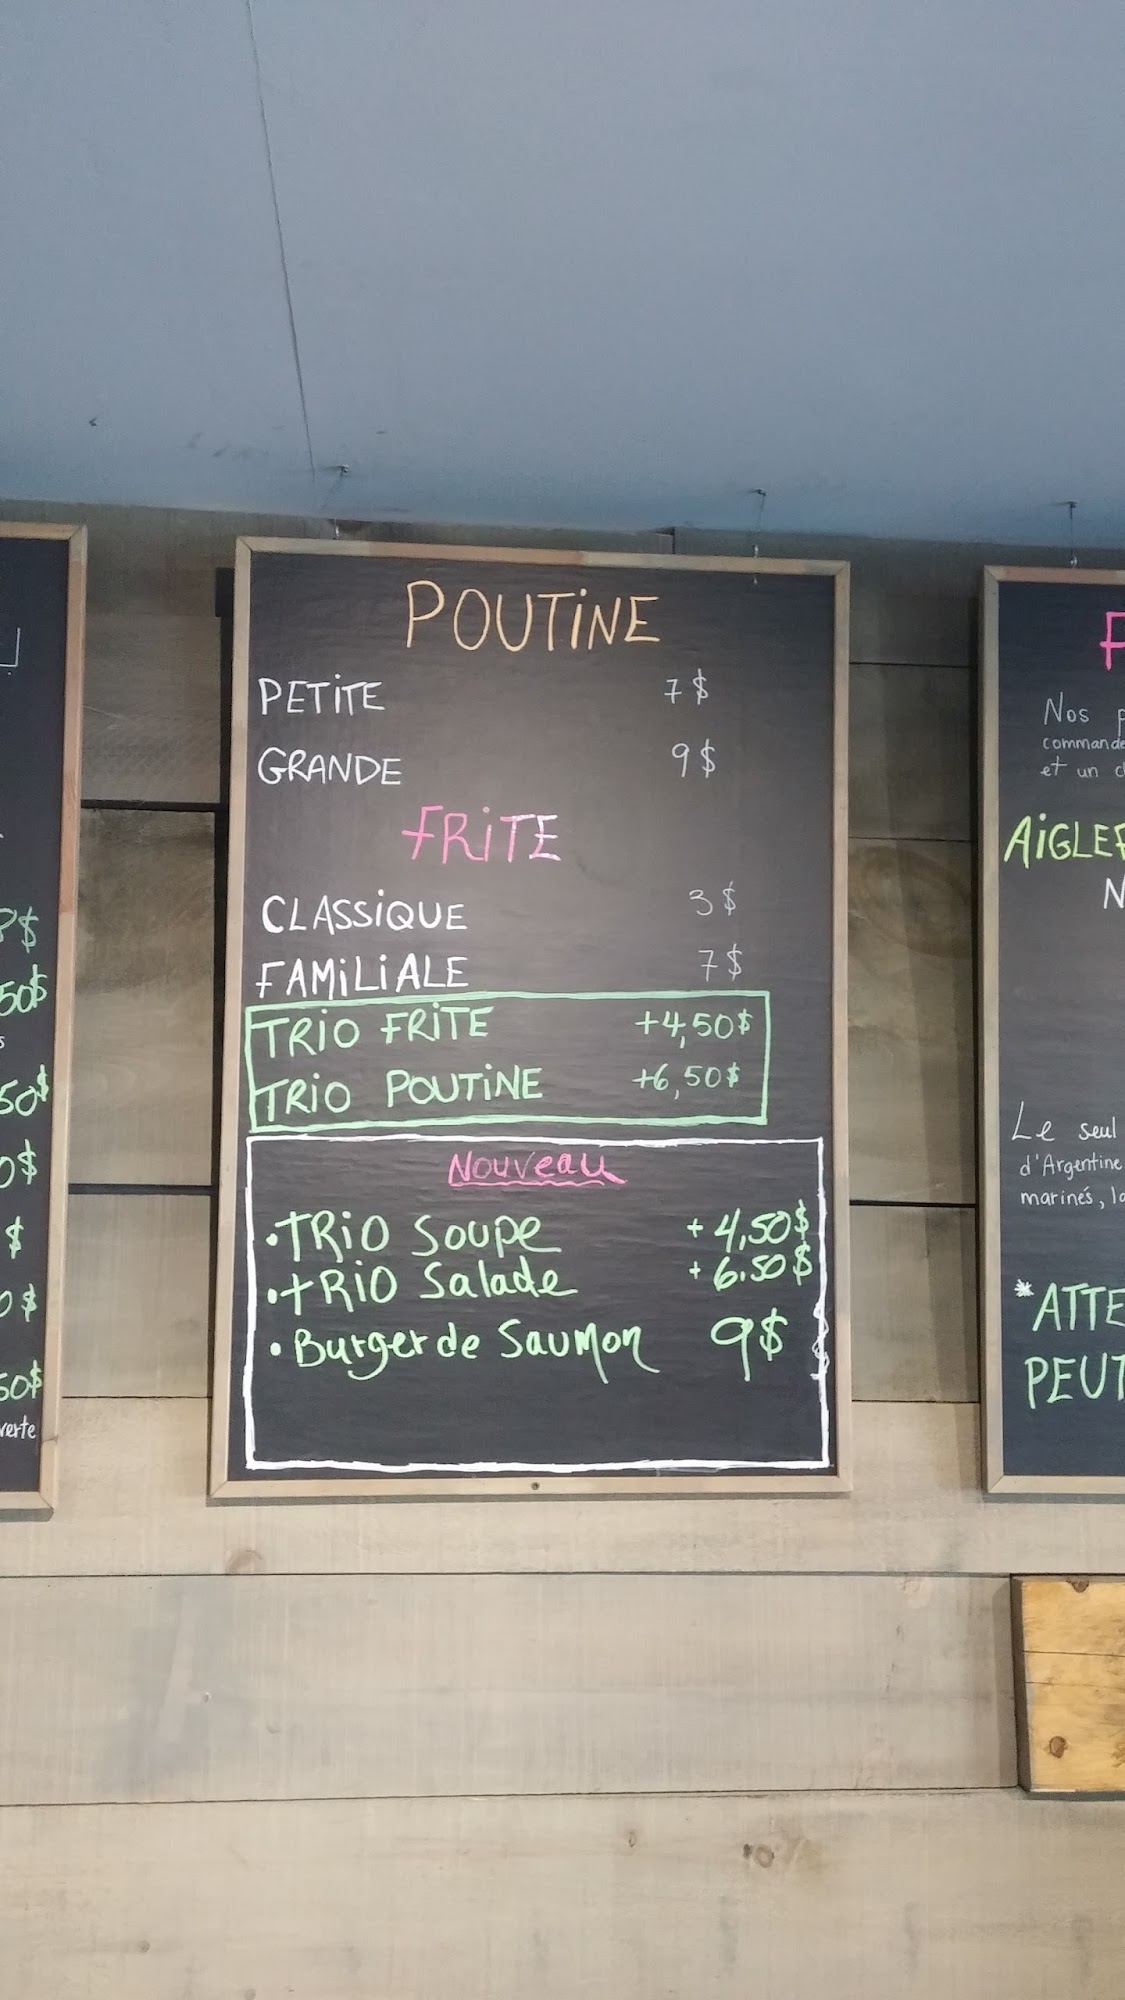 50$
50$
0$
$
0$
50$
verte
POUTINE
PETITE 7$
GRANDE 9$
FRITE
CLASSIQUE 3$
FAMILIALE 7$
TRIO FRITE +4,50$
TRIO POUTINE +6,50$
Nouveau
•TRIO Soupe +4,50$
•TRIO Salade +6.50$
•Burger de Saumon 9$
Nos
commande
et un
Le seul
d'Argentine
marinés,
*ATTE
PEUT